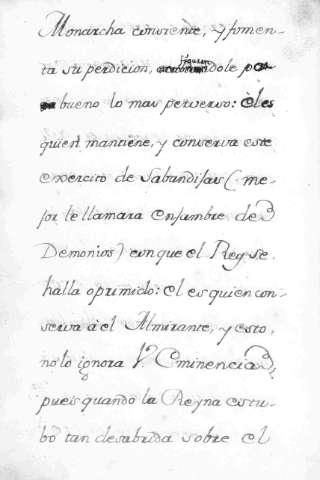 Monarcha consiente, y fomen-
ta su perdicion, figurandole po
bueno lo mas perverso: èl es
quien mantiene, y conserva este
exercito de sabandijas (me-
jor le llamara enjambre de
Demonios) con que el Rey se
halla oprimido: el es quien con-
serva à el Almirante, y esto,
no lo ignora V. Eminencia,
pues quando la Reyna estu-
bo tan desabrida sobre el